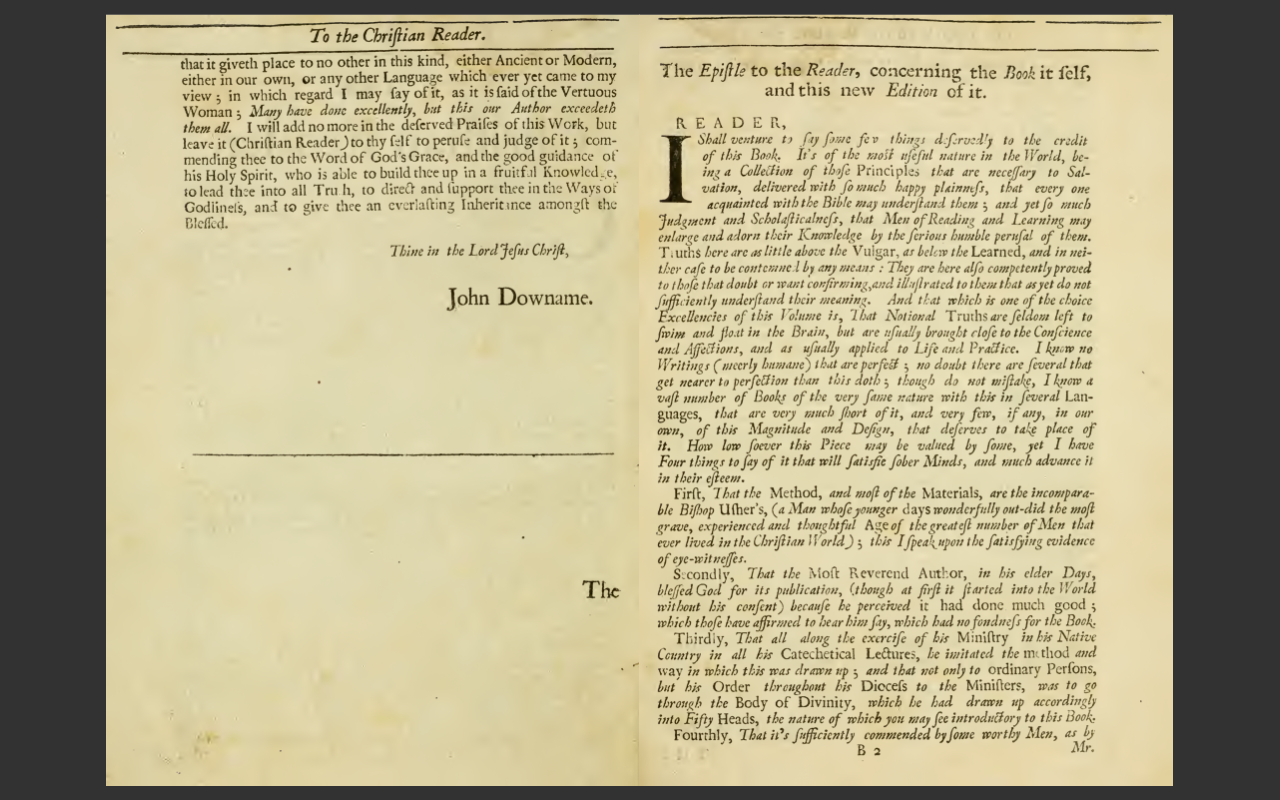 To the Chriſtian Reader.
that it giveth place to no other in this kind, either Ancient or Modern,
either in our own, or any other Language which ever yet came to my
view ; in which regard I may ſay of it, as it is ſaid of the Vertuous
Woman ; Many have done excellently, but this our Author exceedeth
them all. I will add no more in the deſerved Praiſes of this Work, but
leave it (Chriſtian Reader) to thy ſelf to peruſe and judge of it ; com-
mending thee to the Word of God's Grace, and the good guidance of
his Holy Spirit, who is able to build thee up in a fruitful Knowledge,
to lead thee into all Truth, to direct and ſupport thee in the Ways of
Godlineſs, and to give thee an everlaſting Inheritance amongſt the
Bleſſed.
Thine in the Lord Jeſus Chriſt,
John Downame.
The
The Epiſtle to the Reader, concerning the Book it ſelf,
and this new Edition of it.
READER,
I Shall venture to ſay ſome few things deſervedly to the credit
of this Book. It's of the moſt uſeful nature in the World, be-
ing a Collection of thoſe Principles that are neceſſary to Sal-
vation, delivered with ſo much happy plainneſs, that every one
acquainted with the Bible may underſtand them ; and yet ſo much
Judgment and Scholaſticalneſs, that Men of Reading and Learning may
enlarge and adorn their Knowledge by the ſerious humble peruſal of them.
Truths here are as little above the Vulgar, as below the Learned, and in nei-
ther caſe to be contemned by any means : They are here alſo competently proved
to thoſe that doubt or want confirming, and illuſtrated to them that as yet do not
ſufficiently underſtand their meaning. And that which is one of the choice
Excellencies of this Volume is, That Notional Truths are ſeldom left to
ſwim and float in the Brain, but are uſually brought cloſe to the Conſcience
and Affections, and as uſually applied to Life and Practice. I know no
Writings (meerly humane) that are perfect ; no doubt there are ſeveral that
get nearer to perfection than this doth ; though do not miſtake, I know a
vaſt number of Books of the very ſame nature with this in ſeveral Lan-
guages, that are very much ſhort of it, and very few, if any, in our
own, of this Magnitude and Deſign, that deſerves to take place of
it. How low ſoever this Piece may be valued by ſome, yet I have
Four things to ſay of it that will ſatisfie ſober Minds, and much advance it
in their eſteem.
Firſt, That the Method, and moſt of the Materials, are the incompara-
ble Biſhop Uſher's, (a Man whoſe younger days wonderfully out-did the moſt
grave, experienced and thoughtful Age of the greateſt number of Men that
ever lived in the Chriſtian World) ; this I ſpeak upon the ſatisfying evidence
of eye-witneſſes.
Secondly, That the Moſt Reverend Author, in his elder Days,
bleſſed God for its publication, (though at firſt it ſtarted into the World
without his conſent) becauſe he perceived it had done much good ;
which thoſe have affirmed to hear him ſay, which had no fondneſs for the Book.
Thirdly, That all along the exerciſe of his Miniſtry in his Native
Country in all his Catechetical Lectures, he imitated the method and
way in which this was drawn up ; and that not only to ordinary Perſons,
but his Order throughout his Dioceſs to the Miniſters, was to go
through the Body of Divinity, which he had drawn up accordingly
into Fifty Heads, the nature of which you may ſee introductory to this Book.
Fourthly, That it's ſufficiently commended by ſome worthy Men, as by
B 2 Mr.